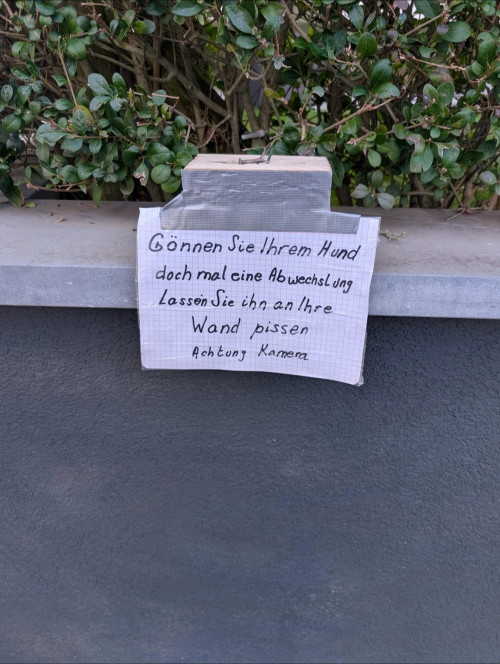 Gönnen Sie Ihrem Hund
doch mal eine Abwechslung
Lassen Sie ihn an Ihre
Wand pissen
Achtung Kamera